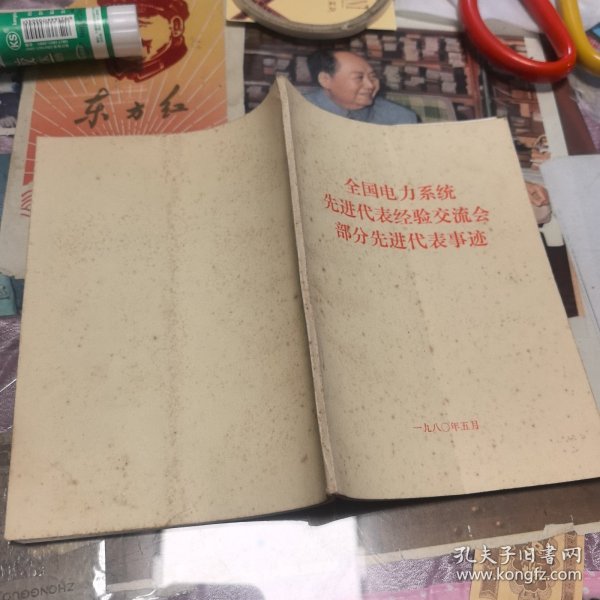 东方红
全国电力系统
先进代表经验交流会
部分先进代表事迹
一九八〇年五月
孔夫子旧书网
www.kongfz.com